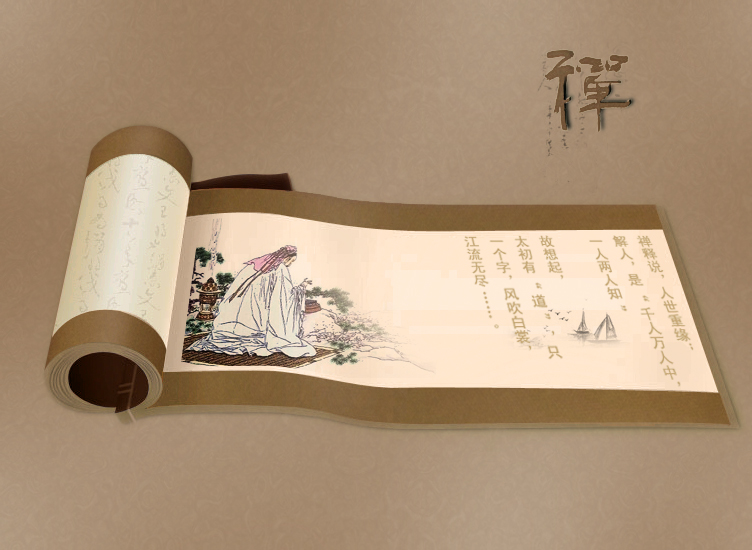 禪
禅释说，人世重缘；
解人，是“千人万人中，
一人两人知”。
故想起，
太初有“道”，只
一个字，风吹白裳，
江流无尽……。